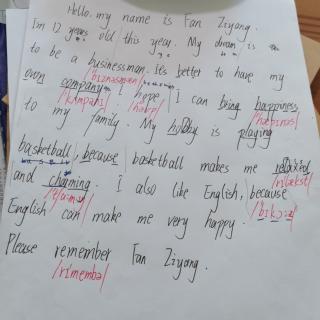 Hello. my name is Fan Ziyang.
I'm 12 years old this year. My dream is
to be a businessman. It's better to have my
/bɪznəsmən/
own company. I hope I can bring happiness
/kʌmpəni/ /həʊp/ /hæpɪnəs/
to my family. My hobby is playing
basketball, because basketball makes me relaxed
/rɪlækst/
and charming. I also like English, because
English can make me very happy.
Please remember Fan Ziyang.
/rɪmembə/